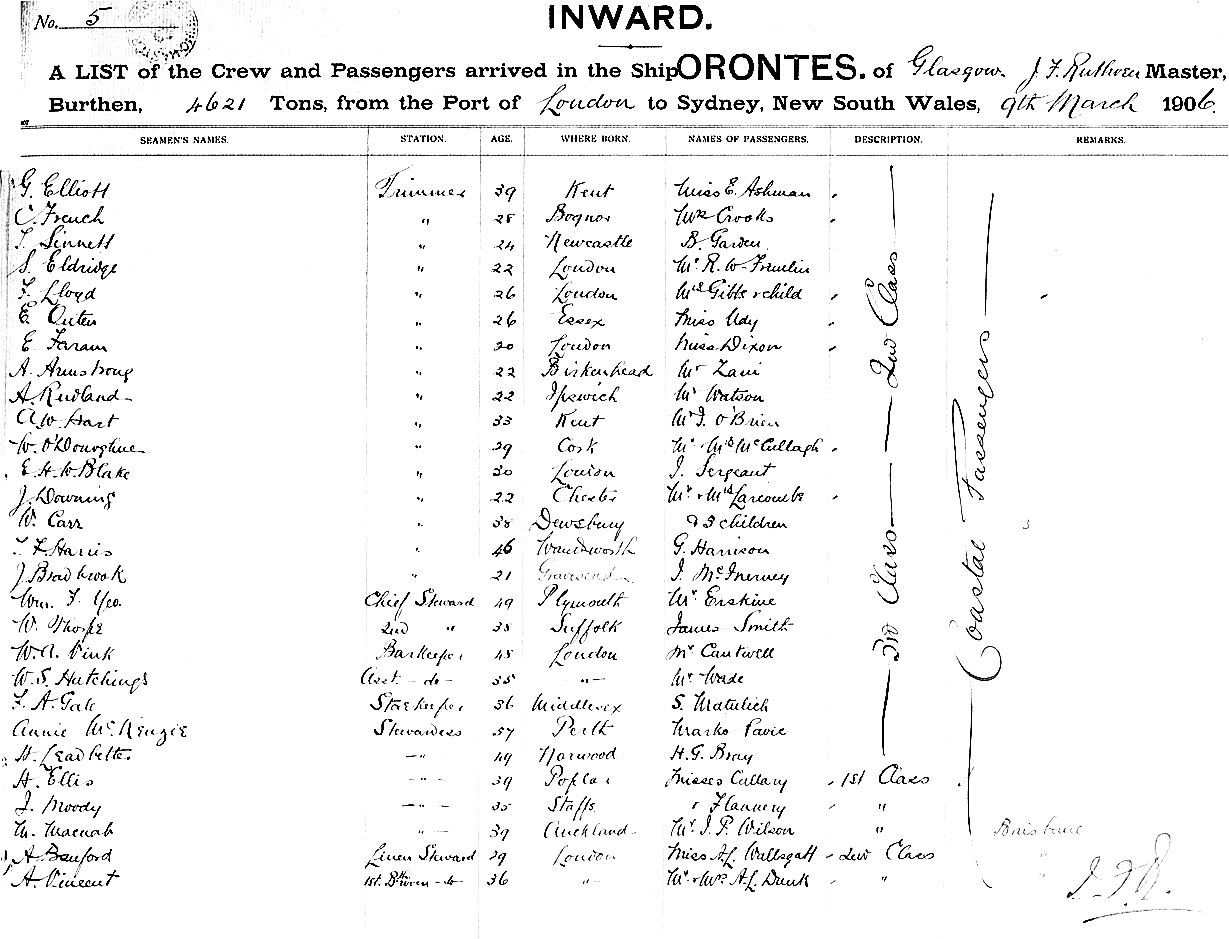 No. 5
INWARD.
A LIST of the Crew and Passengers arrived in the Ship ORONTES. of Glasgow. J. F. Ruthven Master,
Burthen, 4621 Tons, from the Port of London to Sydney, New South Wales, 9th March 1906.
SEAMEN'S NAMES. STATION. AGE. WHERE BORN. NAMES OF PASSENGERS. DESCRIPTION. REMARKS.
G. Elliott Trimmer 39 Kent Miss E. Ashman
C. French " 28 Bognor Mrs Crooks
T. Sinnett " 24 Newcastle B. Garden
S. Eldridge " 22 London Mr R. W. Fremlin
F. Lloyd " 26 London Mrs Gibbs & child
E. Outen " 26 Essex Miss Udy
E. Faram " 20 London Miss Dixon
A. Armstrong " 22 Birkenhead Mr Zani
A. Rudland " 22 Ipswich Mr Watson
A W. Hart " 33 Kent Mr J. O'Brien
W. O'Donoghue " 29 Cork Mr Mrs McCullagh
E. H. W. Blake " 30 London J. Sergeant
J. Downing " 22 Chester Mr & Mrs Larcombe
W. Carr " 38 Dewsbury & 3 children
F. Harris " 46 Wandsworth G. Harrison
J. Bradbrook " 21 Gravesend J. McInerney
Wm. F. Yeo. Chief Steward 49 Plymouth Mr Erskine
W. Thorpe 2nd " 35 Suffolk James Smith
W. A. Pink Barkeeper 45 London Mr Cantwell
W. S. Hutchings Asst. -do- 35 -"- Mr Wade
F. A. Gale Storekeeper 36 Middlesex S. Matulich
Annie McKenzie Stewardess 57 Perth Marko Pavic
H. Leadbetter -"- 49 Norwood H. G. Bray
A. Ellis -"- 39 Poplar Misses Cullary 1st Class
J. Moody -"- 35 Staffs. & Flannery "
M. Macnab -"- 39 Auckland Mr J. P. Wilson " Brisbane
A. Banford Linen Steward 29 London Miss A. L. 2nd Class "
A. Vincent 1st. -do- 36 -"- Mr & Mrs A. L. Dunk " "
3rd Class 2nd Class
Coastal Passengers
J. F. R.